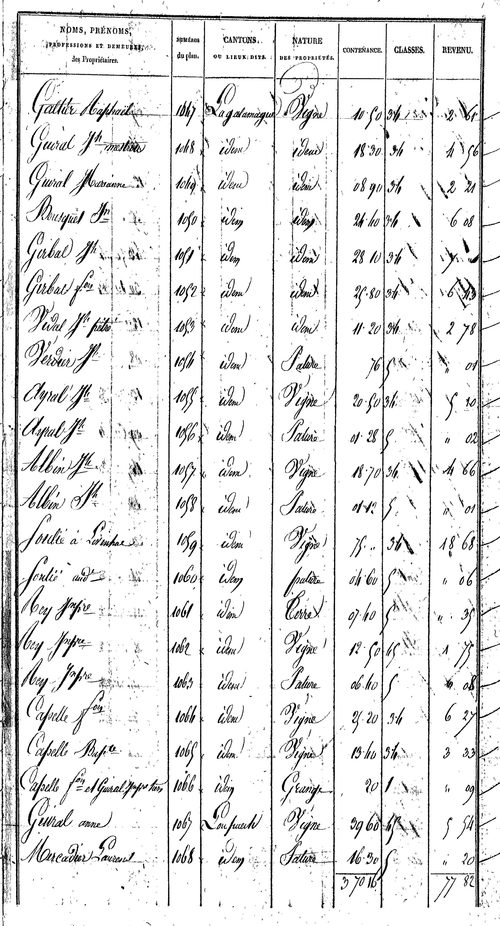 NOMS, PRÉNOMS, PROFESSIONS ET DEMEURES, des Propriétaires. NUMÉROS du plan. CANTONS. OU LIEUX DITS. NATURE DES PROPRIÉTÉS. CONTENANCE. CLASSES. REVENU.
Galtier Raphael 1047 Lagalamague Vigne 10 50 34 2 61
Guiral Jh 1048 idem idem 18 30 34 4 56
Guiral Marianne 1049 idem idem 08 90 34 2 21
Bousquet Jn 1050 idem idem 24 40 34 6 08
Girbal Jh 1051 idem idem 28 10 34 7
Girbal fois 1052 idem idem 25 80 34 6 43
Vidal Jh 1053 idem idem 11 20 34 2 78
Verdier Jh 1054 idem Pature 76 5 " 01
Ayral Jh 1055 idem Vigne 20 50 34 5 10
Ayral Jh 1056 idem Pature 01 28 5 " 02
Albin Jh 1057 idem Vigne 18 70 34 4 66
Albin Jh 1058 idem Pature 01 12 5 " 01
Soulié à 1059 idem Vigne 75 " 34 18 68
Soulié 1060 idem pature 04 60 5 " 06
Rey 1061 idem Terre 07 40 5 " 35
Rey 1062 idem Vigne 12 50 45 1 75
Rey 1063 idem Pature 06 40 5 " 08
Capelle fois 1064 idem Vigne 25 20 34 6 27
Capelle Bapte 1065 idem Vigne 13 40 34 3 33
Capelle fois et Guiral 1066 idem Grange 20 1 " 09
Guiral anne 1067 Vigne 39 60 45 5 54
Mercadier Laurent 1068 idem Pature 16 30 5 " 20
3 70 16 77 82